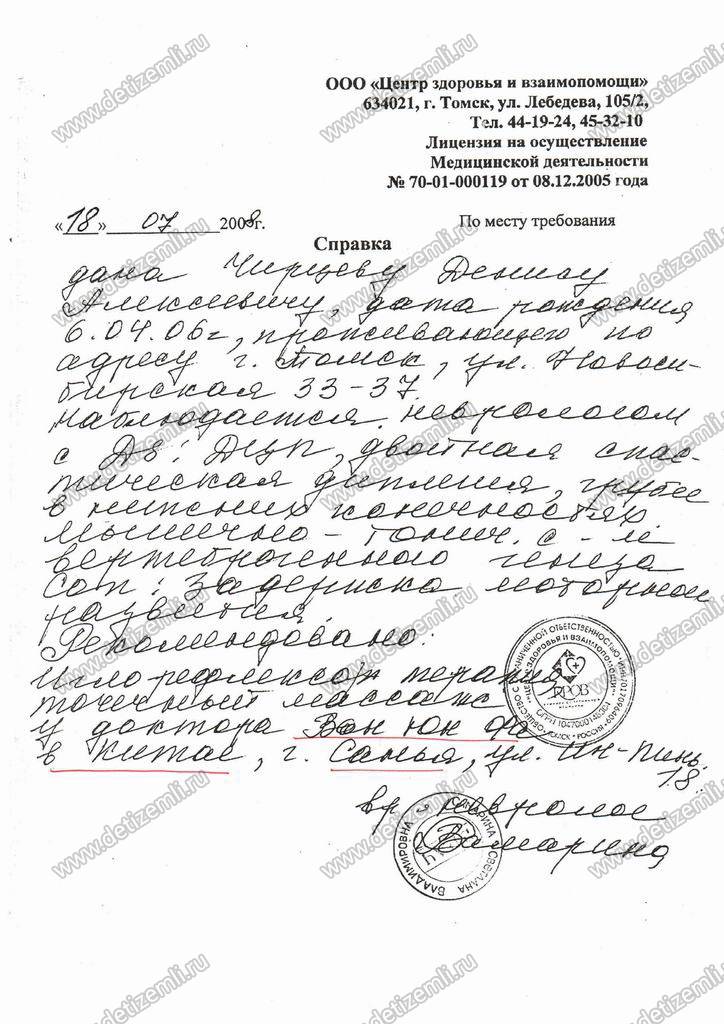 ООО «Центр здоровья и взаимопомощи»
634021, г. Томск, ул. Лебедева, 105/2,
Тел. 44-19-24, 45-32-10
Лицензия на осуществление
Медицинской деятельности
№ 70-01-000119 от 08.12.2005 года
«18» 07 2008г.
По месту требования
Справка
дана Чирцеву Денису
Алексеевичу, дата рождения
6.04.06г, проживающего по
адресу г. Томск, ул. Новоси-
бирская 33-37
наблюдается неврологом
с Ds: ДЦП, двойная спас-
тическая диплегия, грубее
в нижних конечностях
мышечно-тонич. с-м
вертеброгенного генеза
Соп: Задержка моторного
развития
Рекомендовано:
Иглорефлексотерапия
точечный массаж
у доктора Вон Юн Фа
в Китае, г. Санья, ул. Ин-Пинь
18.
вр невролог
Замарина
ОБЩЕСТВО С ОГРАНИЧЕННОЙ ОТВЕТСТВЕННОСТЬЮ
"ЦЕНТР ЗДОРОВЬЯ И ВЗАИМОПОМОЩИ"
ОГРН 1047000148304
ТОМСК РОССИЯ
ЗАМАРИНА СВЕТЛАНА ВЛАДИМИРОВНА
www.detizemli.ru